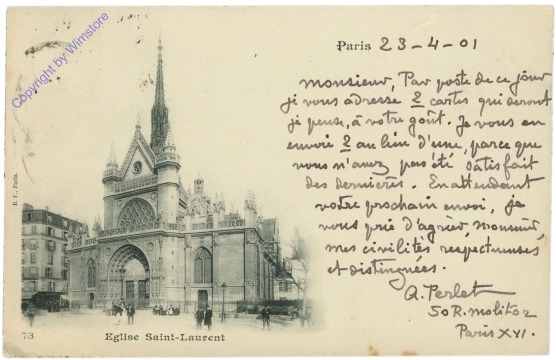 Copyright by Wimstore
Paris 23-4-01
Monsieur, Par poste de ce jour
je vous adresse 2 cartes qui seront
je pense, à votre goût. Je vous en
envoie 2 au lieu d'une, parce que
vous n'avez pas été satisfait
des dernières. En attendant
votre prochain envoi, je
vous prie d'agréer, monsieur,
mes civilités respectueuses
et distinguées.
A. Perlet
50 R. molitor
Paris XVI.
B. F., Paris.
73
Eglise Saint-Laurent